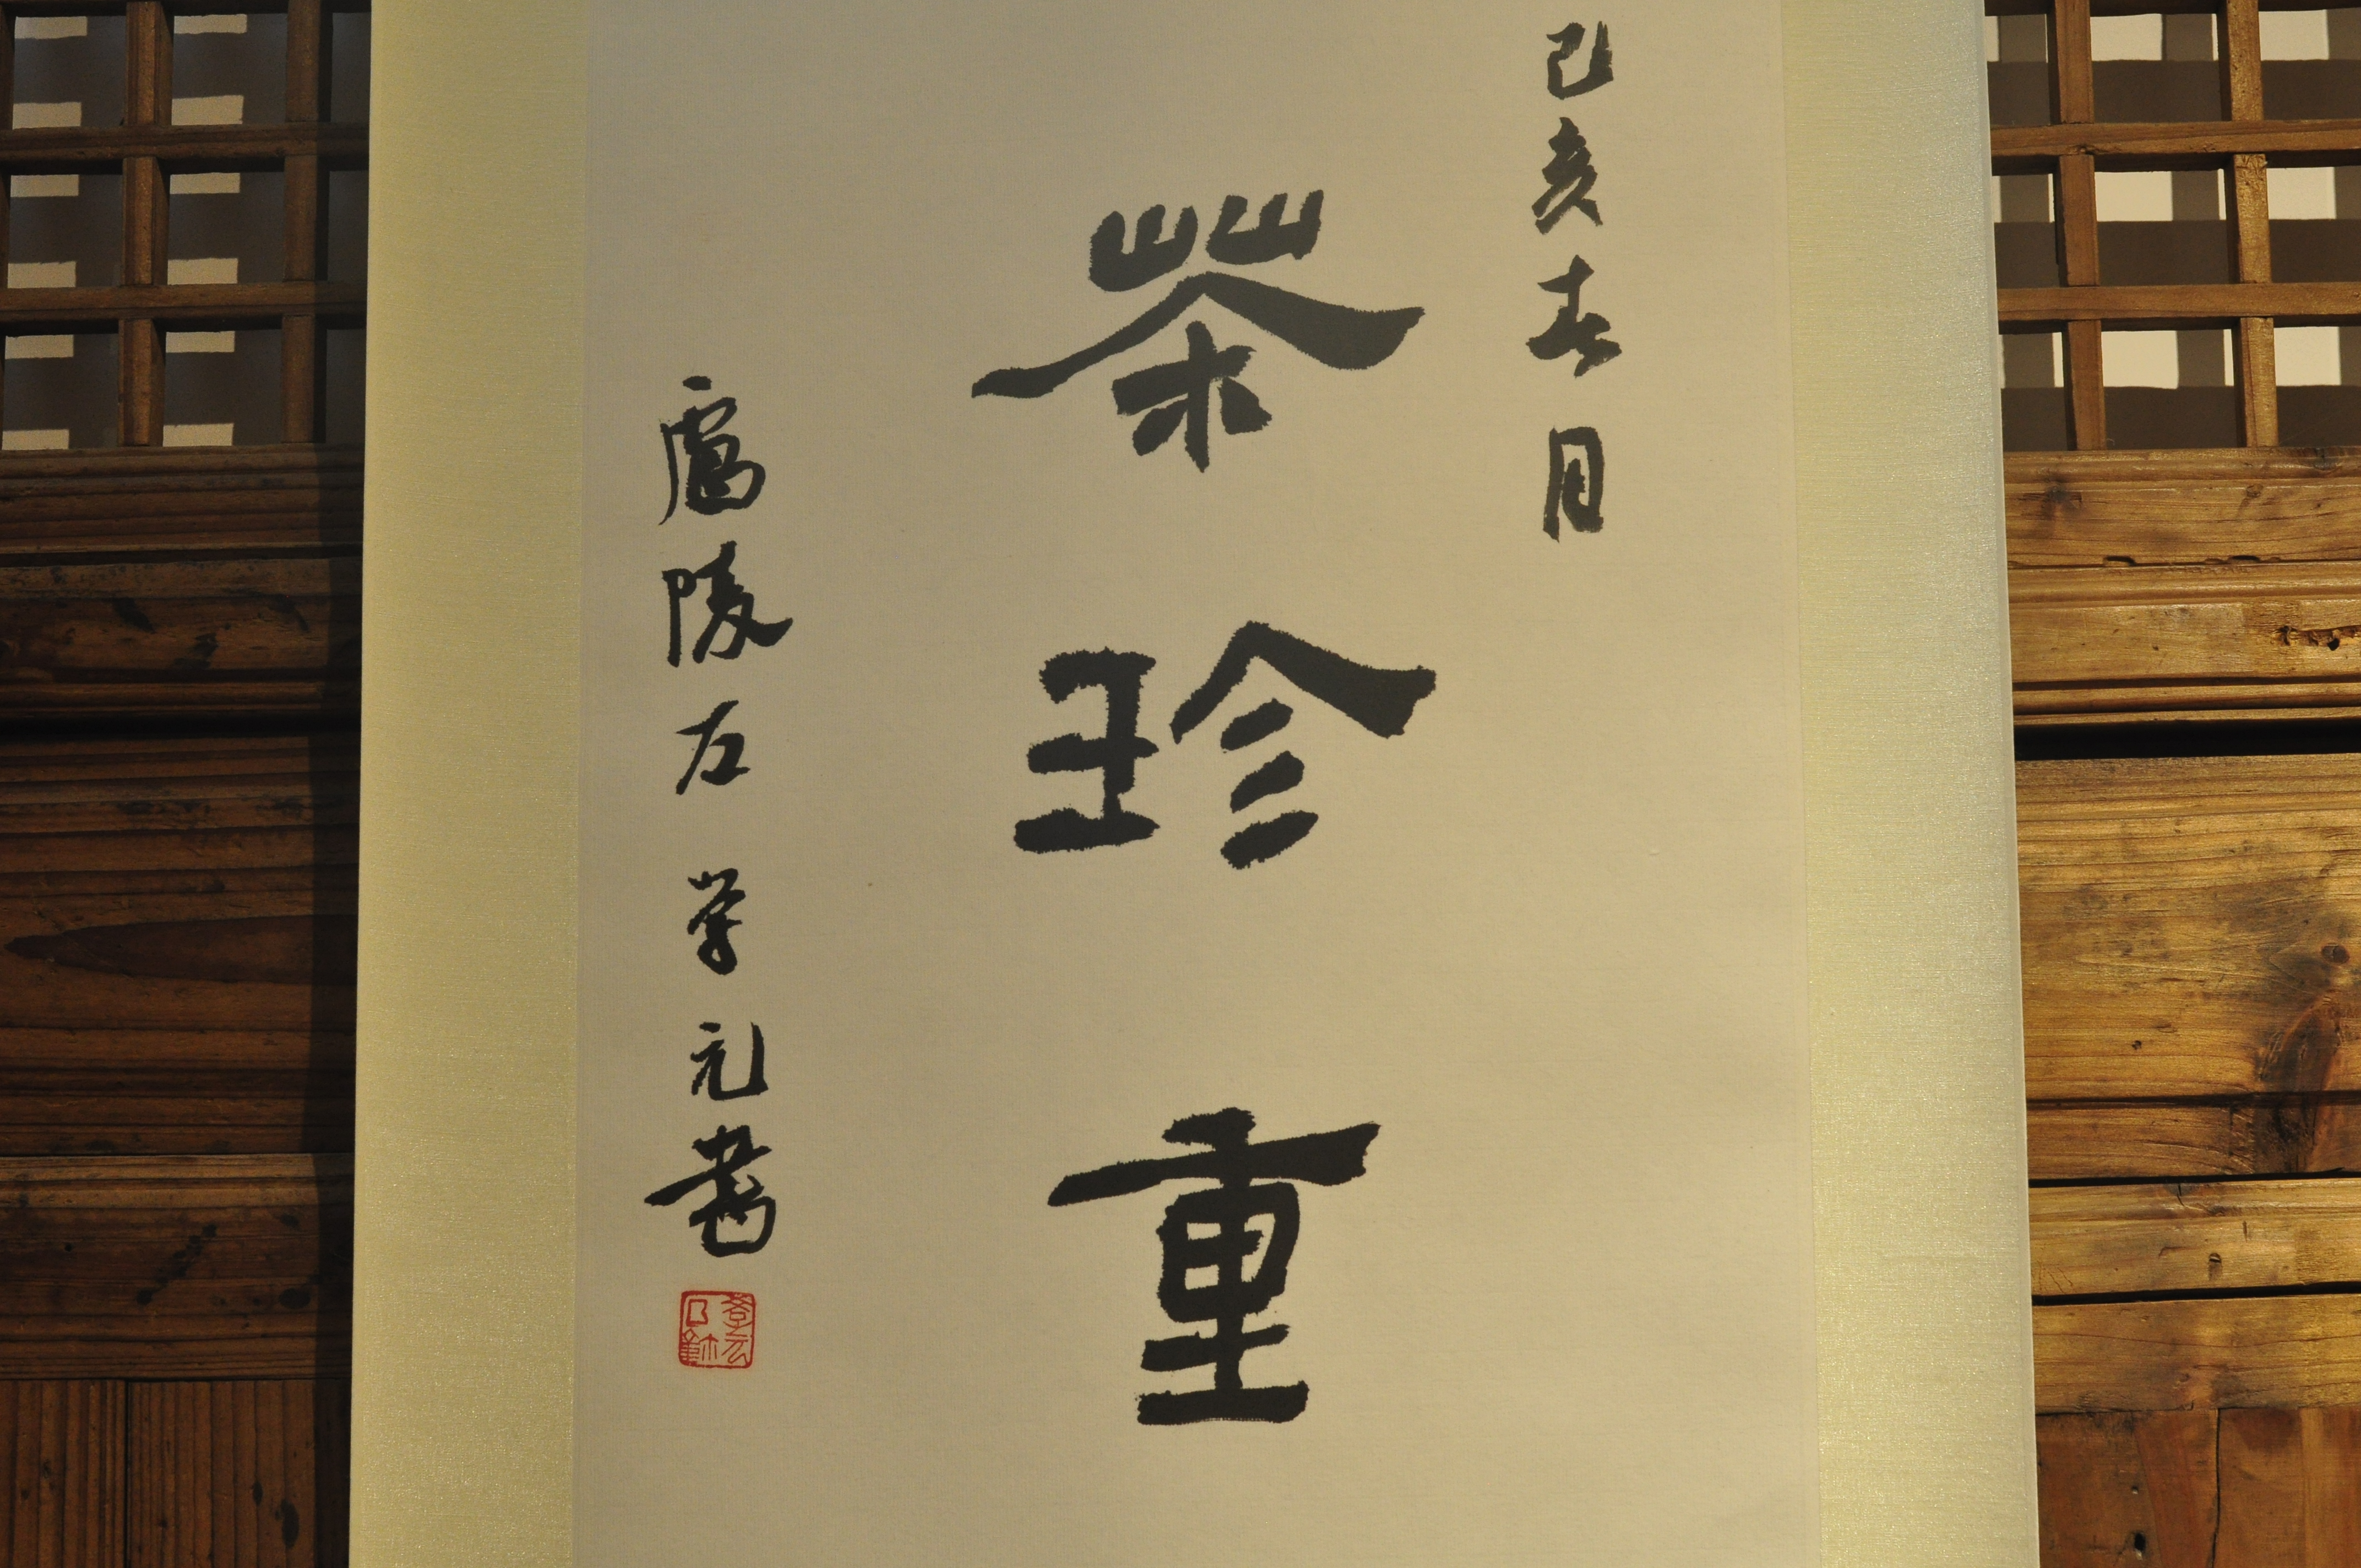 己亥春月
茶珍重
廬陵左学元書